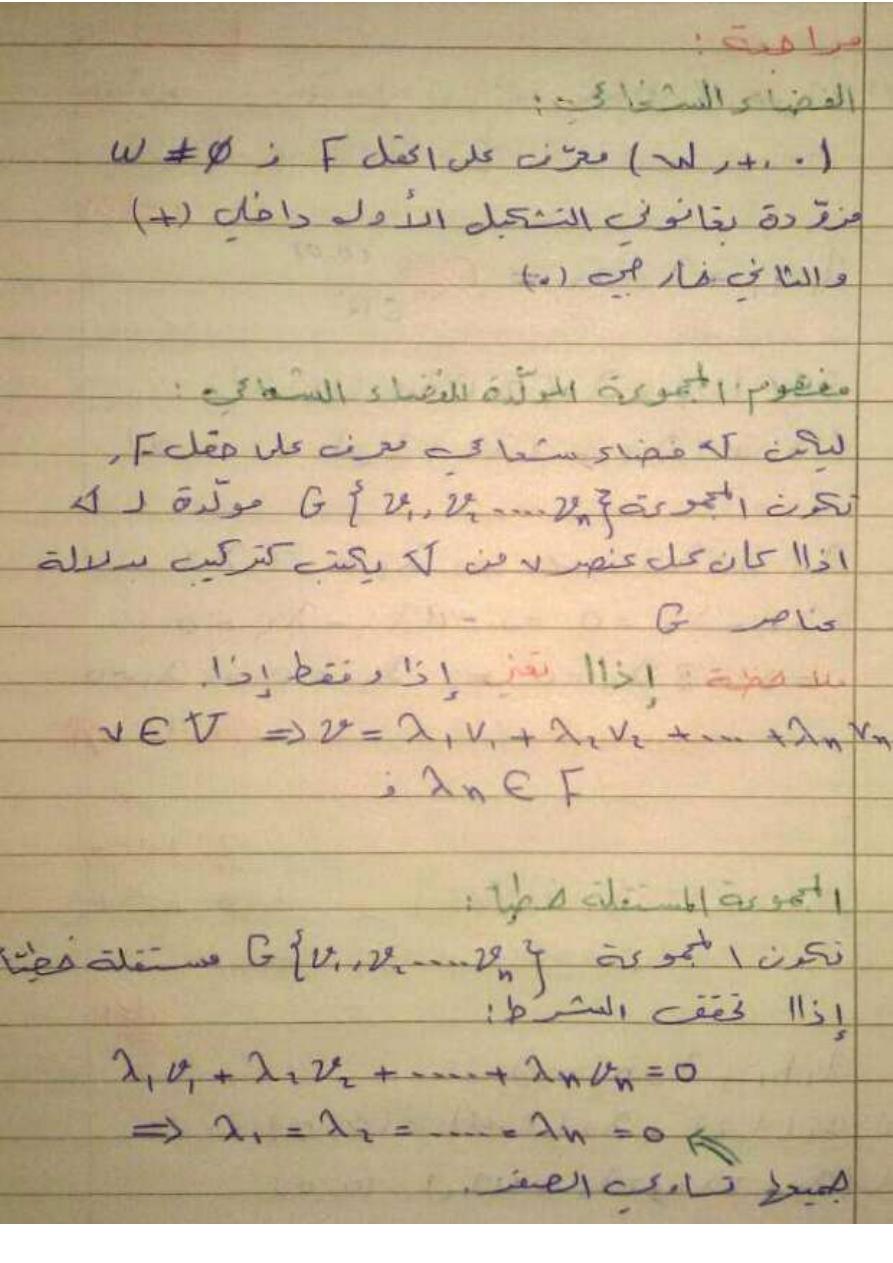 مراجعة:
الفضاء الشعاعي:
(W, +, ·) معرّف على الحقل F ; W ≠ ∅
مزوّدة بقانوني التشكيل الأول داخلي (+)
والثاني خارجي (·)
مفهوم المجموعة المولّدة للفضاء الشعاعي:
ليكن V فضاء شعاعي معرف على حقل F,
تكون المجموعة G {v₁, v₂ .... vₙ} مولّدة لـ V
اذاا كان كل عنصر v من V يكتب كتركيب بدلالة
عناصر G
ملاحظة: إذاا تعني إذا وفقط إذا.
v ∈ V ⇒ v = λ₁v₁ + λ₂v₂ + .... + λₙvₙ
; λₙ ∈ F
المجموعة المستقلة خطيا:
تكون المجموعة G {v₁, v₂ .... vₙ} مستقلة خطيّا
إذاا تحقق الشرط:
λ₁v₁ + λ₂v₂ + ..... + λₙvₙ = 0
⇒ λ₁ = λ₂ = ..... = λₙ = 0
جميعها تساوي الصفر.